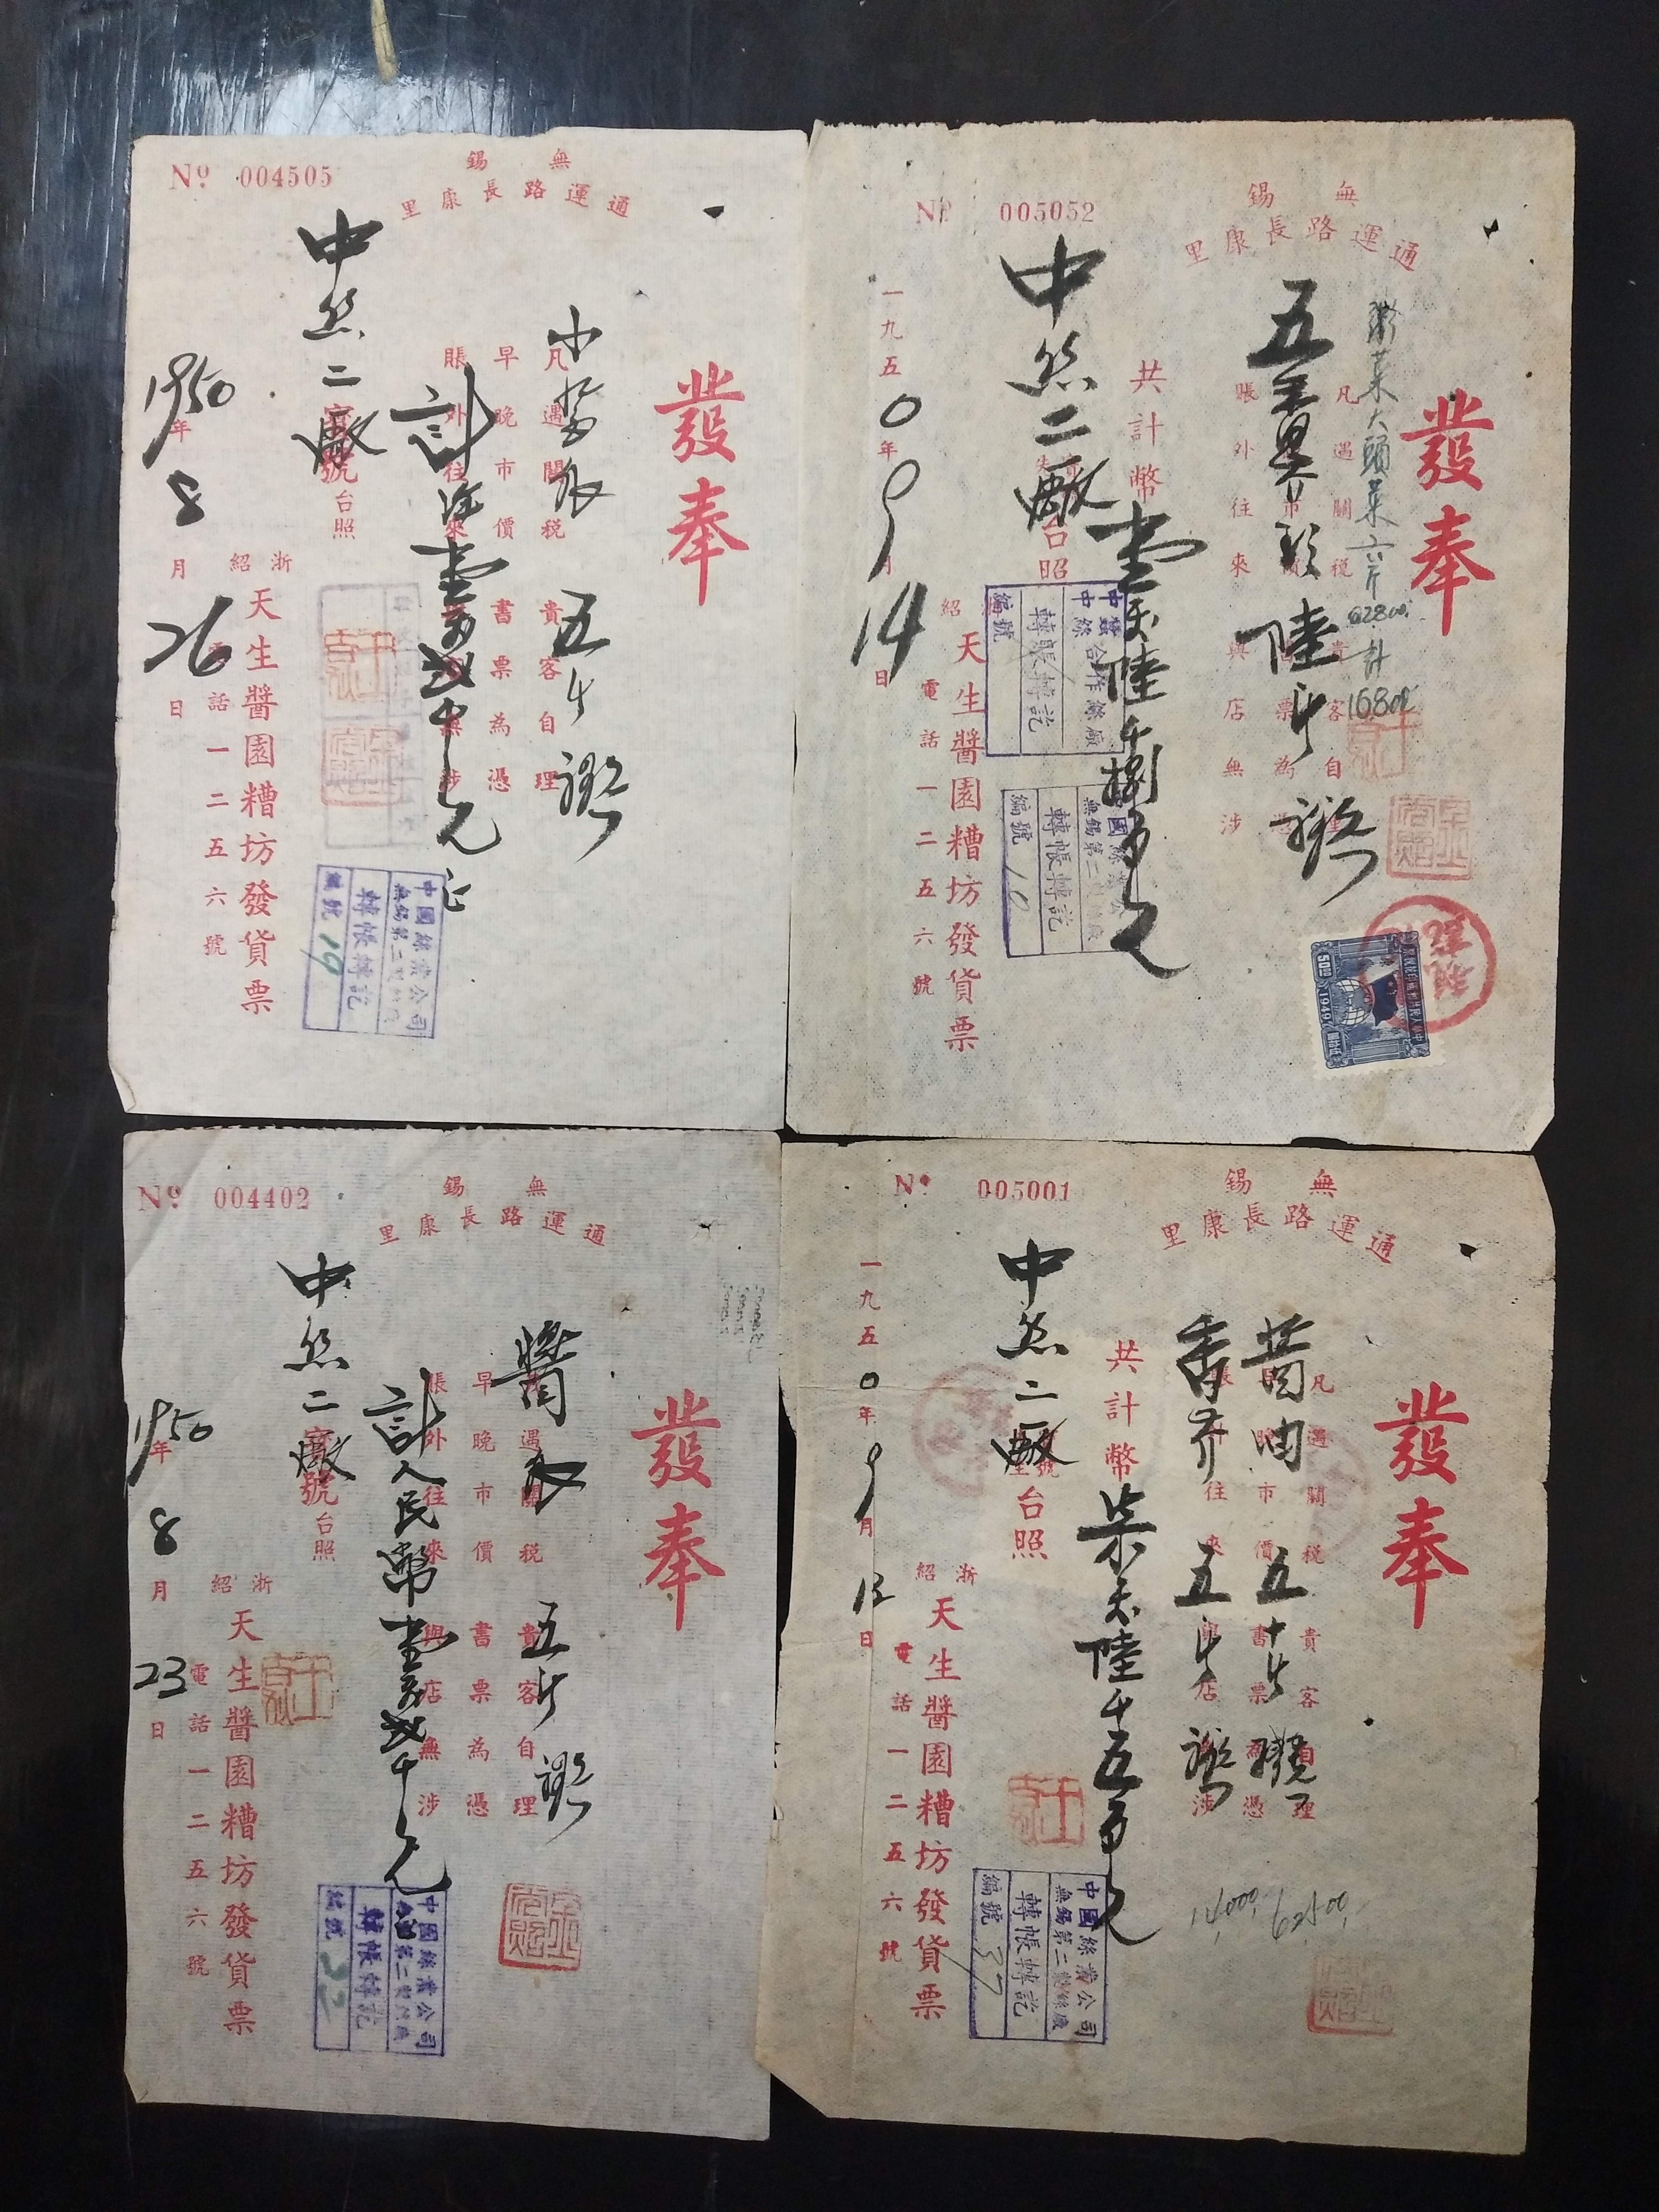 No 004505
無錫
通運路長康里
發奉
凡遇關稅貴客自理
早晚市價書票為憑
賬外往來與店無涉
五斤
計
壹萬弍千元正
中絲二廠
號台照
浙紹
天生醬園糟坊發貨票
電話一二五六號
1950年8月26日
中國絲業公司
無錫第二製絲廠
轉帳轉記
編號 19
No 005052
無錫
通運路長康里
發奉
大頭菜六斤
@2800
計
16800
凡遇關稅貴客自理
賬外往來與店無涉
陸斤
共計幣壹萬陸千捌百元
中絲二廠
台照
天生醬園糟坊發貨票
電話一二五六號
一九五0年9月14日
中蠶
中絲
合作絲廠
轉賬轉記
編號
中國絲業公司
無錫第二製絲廠
轉帳轉記
編號 10
1949
No 004402
無錫
通運路長康里
發奉
凡遇關稅貴客自理
早晚市價書票為憑
賬外往來與店無涉
醬
五斤
計人民幣壹萬弍千元
中絲二廠
號台照
浙紹
天生醬園糟坊發貨票
電話一二五六號
1950年8月23日
中國絲業公司
無錫第二製絲廠
轉帳轉記
編號 32
No 005001
無錫
通運路長康里
發奉
凡遇關稅貴客自理
醬油 五十斤
香 五斤
62500
14000
共計幣柒萬陸千五百元
中絲二廠
台照
浙紹
天生醬園糟坊發貨票
電話一二五六號
一九五0年9月12日
中國絲業公司
無錫第二製絲廠
轉帳轉記
編號 37